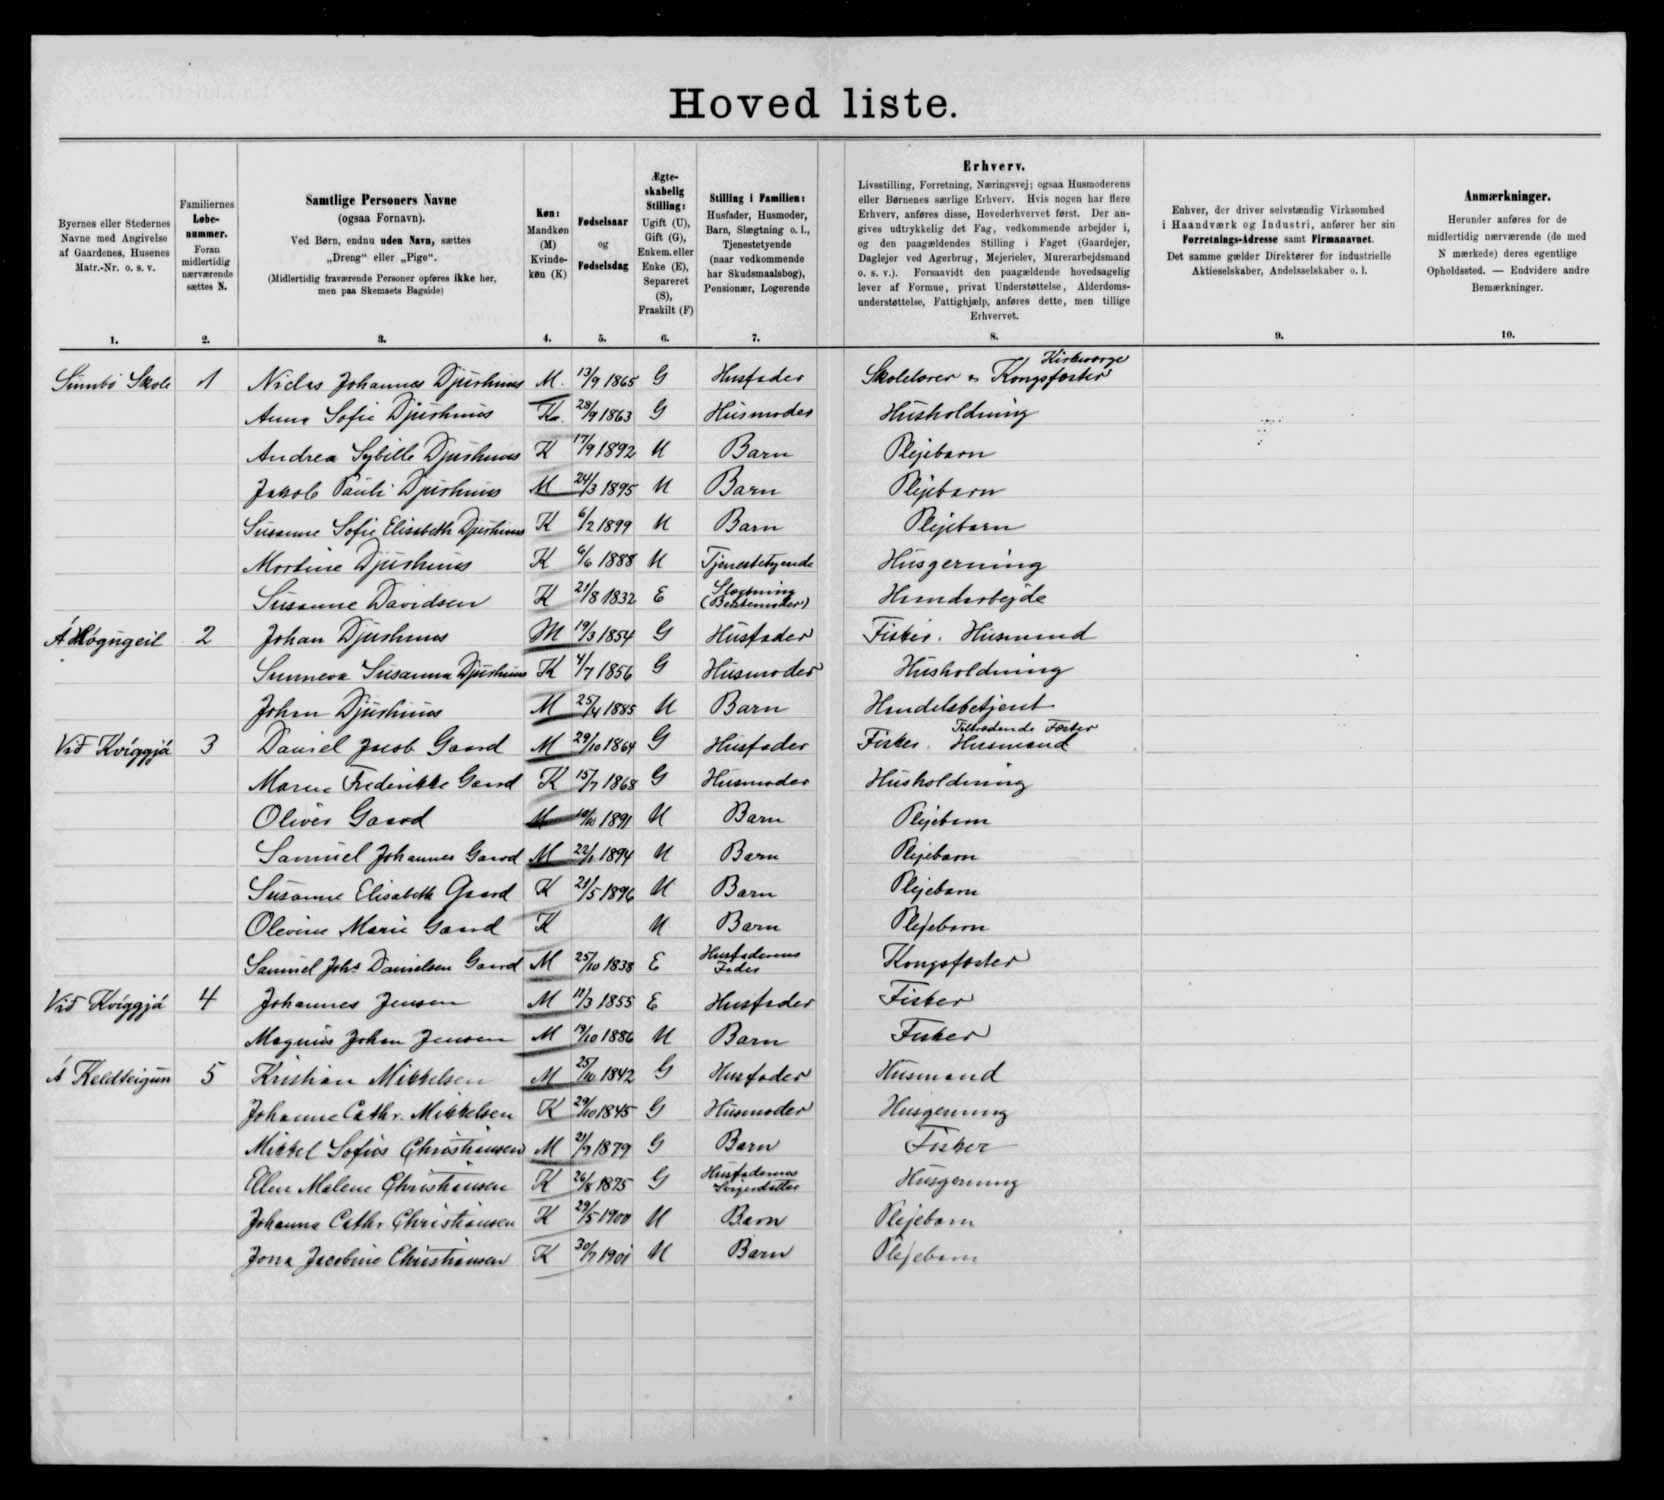 Hoved liste.
Byernes eller Stedernes
Navne med Angivelse
af Gaardenes, Husenes
Matr.-Nr. o. s. v.
1.
Familiernes
Løbe-
nummer.
Foran
midlertidig
nærværende
sættes N.
2.
Samtlige Personers Navne
(ogsaa Fornavn).
Ved Børn, endnu uden Navn, sættes
„Dreng“ eller „Pige“.
(Midlertidig fraværende Personer opføres ikke her,
men paa Skemaets Bagside)
3.
Køn:
Mandkøn
(M)
Kvinde-
køn (K)
4.
Fødselsaar
og
Fødselsdag
5.
Ægte-
skabelig
Stilling:
Ugift (U),
Gift (G),
Enkem. eller
Enke (E),
Separeret
(S),
Fraskilt (F)
6.
Stilling i Familien:
Husfader, Husmoder,
Barn, Slægtning o. l.,
Tjenestetyende
(naar vedkommende
har Skudsmaalsbog),
Pensionær, Logerende
7.
Erhverv.
Livsstilling, Forretning, Næringsvej; ogsaa Husmoderens
eller Børnenes særlige Erhverv. Hvis nogen har flere
Erhverv, anføres disse, Hovederhvervet først. Der an-
gives udtrykkelig det Fag, vedkommende arbejder i,
og den paagældendes Stilling i Faget (Gaardejer,
Daglejer ved Agerbrug, Mejerielev, Murerarbejdsmand
o. s. v.). Forsaavidt den paagældende hovedsagelig
lever af Formue, privat Understøttelse, Alderdoms-
understøttelse, Fattighjælp, anføres dette, men tillige
Erhvervet.
8.
Enhver, der driver selvstændig Virksomhed
i Haandværk og Industri, anfører her sin
Forretnings-Adresse samt Firmanavnet.
Det samme gælder Direktører for industrielle
Aktieselskaber, Andelsselskaber o. l.
9.
Anmærkninger.
Herunder anføres for de
midlertidig nærværende (de med
N mærkede) deres egentlige
Opholdssted. — Endvidere andre
Bemærkninger.
10.
Kirkeværge
Sunnbö Skole 1 Niclas Johannes Djurhuus M. 13/9 1865 G Husfader Skolelærer og Kongsfæster
Anna Sofie Djurhuus K. 28/9 1863 G Husmoder Husholdning
Andrea Sybille Djurhuus K 17/9 1892 U Barn Plejebarn
Jakob Pauli Djurhuus M 24/3 1895 U Barn Plejebarn
Susanne Sofie Elisabeth Djurhuus K 6/2 1899 U Barn Plejebarn
Mortine Djurhuus K 6/6 1888 U Tjenestetyende Husgerning
Susanne Davidsen K 21/8 1832 E Slægtning (Bestemoder) Haandarbejde
Á Høgugeil 2 Johan Djurhuus M 19/3 1854 G Husfader Fisker. Husmand
Sunneva Susanna Djurhuus K 4/7 1856 G Husmoder Husholdning
Johan Djurhuus M 25/4 1885 U Barn Handelsbetjent
Tiltrædende Fæster
Við Kviggjá 3 Daniel Jacob Gaard M 29/10 1864 G Husfader Fisker. Husmand
Maren Frederikke Gaard K 15/7 1868 G Husmoder Husholdning
Oliver Gaard M 10/10 1891 U Barn Plejebarn
Samuel Johannes Gaard M 22/1 1894 U Barn Plejebarn
Susanne Elisabeth Gaard K 21/5 1896 U Barn Plejebarn
Olevine Marie Gaard K U Barn Plejebarn
Samuel Johs Danielsen Gaard M 25/10 1838 E Husfaderens Fader Kongsfæster
Við Kviggjá 4 Johannes Jensen M 11/3 1855 E Husfader Fisker
Magnus Johan Jensen M 19/10 1886 U Barn Fisker
Á Keldteigum 5 Kristian Mikkelsen M 25/10 1842 G Husfader Husmand
Johanne Cathr. Mikkelsen K 29/10 1845 G Husmoder Husgerning
Mikkel Sofus Christiansen M 21/7 1879 G Barn Fisker
Ellen Malene Christiansen K 26/8 1875 G Husfaderens Svigerdatter Husgerning
Johanna Cathr. Christiansen K 29/5 1900 U Barn Plejebarn
Jona Jacobine Christiansen K 30/7 1901 U Barn Plejebarn